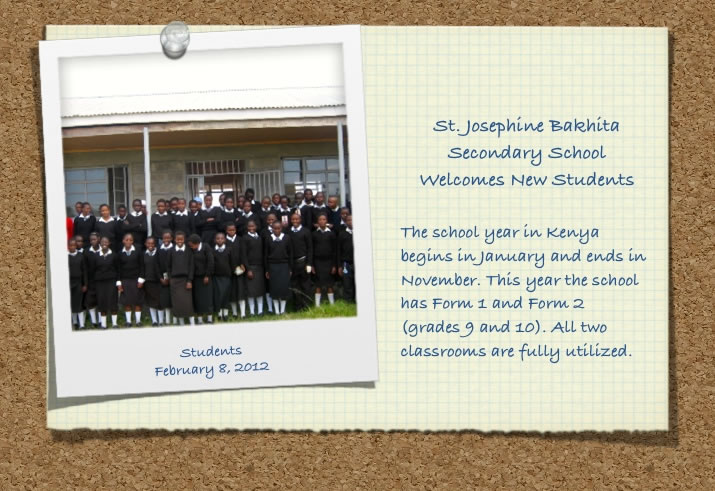 St. Josephine Bakhita
Secondary School
Welcomes New Students
The school year in Kenya
begins in January and ends in
November. This year the school
has Form 1 and Form 2
(grades 9 and 10). All two
classrooms are fully utilized.
Students
February 8, 2012